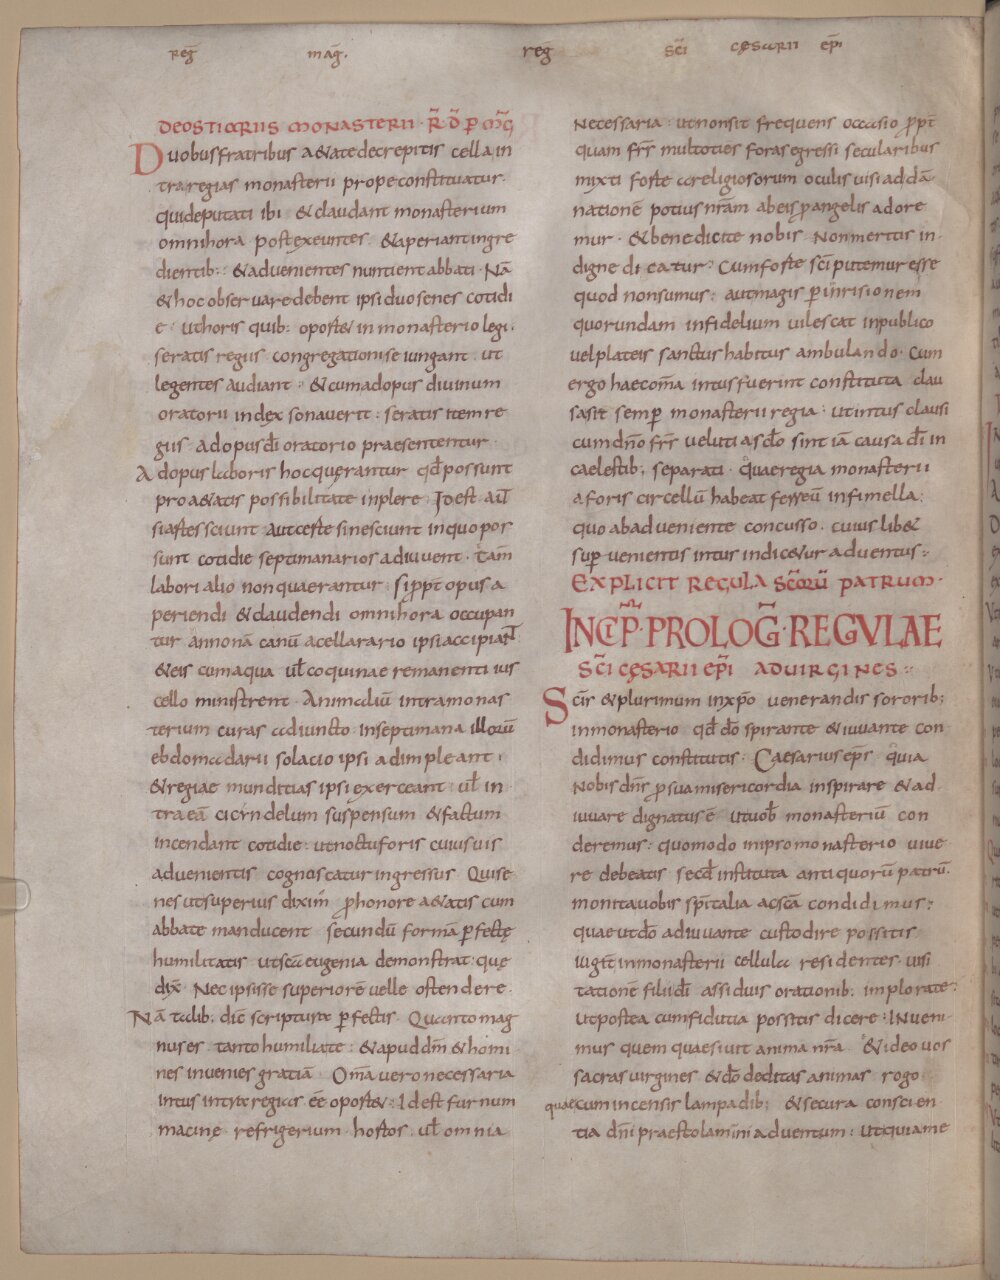 reḡ maḡ. reḡ sc̄i cęsarii ep̄i
DE OSTIARIIS MONASTERII · R̄ D̄ P̄ M̄G
Duobus fratribus a&ate decrepitis cella in
tra regias monasterii prope constituatur·
qui deputati ibi · & claudant monasterium
omni hora post exeuntes · & aperiant ingre
dientib: · & advenientes nuntient abbati · Nā
& hoc observare debent ipsi duo senes cotidi
e · ut horis quib: oport& in monasterio legi·
seratis regiis congregationi se iungant · ut
legentes audiant · & cum ad opus divinum
oratorii index sonaverit · seratis item re
giis · ad opus dī oratorio praesententur
Ad opus laboris hoc quęrantur qđ possunt
pro a&atis possibilitate inplere · Id est aut̄
si artes sciunt aut certe si nesciunt in quo pos
sunt cotidie septimanarios adiuvent · tam̄
labori alio non quaerantur · si ppt̄ opus a
periendi & claudendi omni hora occupan
tur annonā canū a cellarario ipsi accipiant
& eis cum aqua ul̄ coquinae remanenti ius
cello ministrent · Animaliū intra monas
terium curas adiuncto in septimana illorū
ebdomadarii solacio ipsi adimpleant ·
& regiae munditias ipsi exerceant · ul̄ in
tra eā cicindelum suspensum & factum
incendant cotidie · ut noctu foris cuiusvis
advenientis cognoscatur ingressus Qui se
nes ut superius diximꝰ p honore a&atis cum
abbate manducent secundū formā pfectę
humilitatis ut sc̄a eugenia demonstrat quę
dix̄ · Nec ipsis se superiorē velle ostendere ·
Nā talib: diē scriptura pfectis · Quanto mag
nus es · tanto humilia te · & apud dm̄ & homi
nes invenies gratiā Om̄a vero necessaria
intus intra regias ēē oport& · Id est furnum
macine · refrigerium · hortos · ul̄ omnia
necessaria · ut non sit frequens occasio ppt̄
quam fr̄s multoties foras egressi secularibus
mixti forte a religiosorum oculis visi ad dā
nationē potius nr̄am ab eis p angelis adore
mur · & benedicite nobis Non meritis in
digne dicatur · Cum forte sc̄i putemur esse
quod non sumus · aut magis p inrisionem
quorundam infidelium vilescat in publico
vel plateis sanctus habitus ambulando · Cum
ergo haec om̄a intus fuerint constituta clau
sa sit semp monasterii regia · ut intus clausi
cum dn̄o fr̄s veluti a sc̄lo sint iā causa dī in
caelestib; separati · Quae regia monasterii
a foris circellū habeat ferreū in fimella ·
quo ab adveniente concusso · cuiuslib&
supervenientis intus indic&ur adventus ·:
EXPLICIT REGULA SC̄ORŪ PATRUM·
INCIP̄·PROLOḠ·REGULAE
SC̄I CĘSARII EP̄I AD VIRGINES ·:
Sc̄is & plurimum in xp̄o venerandis sororib;
in monasterio qđ dō spirante & iuvante con
didimus constitutis · Caesarius ep̄s · quia
Nobis dn̄s p sua misericordia inspirare & ad
iuvare dignatus ē ut vob̄ monasteriū con
deremus · quomodo in ipso monasterio vive
re debeatis secđ instituta antiquorū patrū·
monita vobis sp̄italia ac sc̄a condidimus ·
quae ut dō adiuvante custodire possitis
iugit̄ in monasterii cellula residentes · visi
tationē filii dī assiduis orationib: implorate:
ut postea cum fidutia possitis dicere · Inveni
mus quem quaesivit anima nr̄a · & ideo vos
sacras virgines & dō deditas animas rogo
quae cum incensis lampadib; & secura conscien
tia dn̄i praestolamini adventum · ut quia me